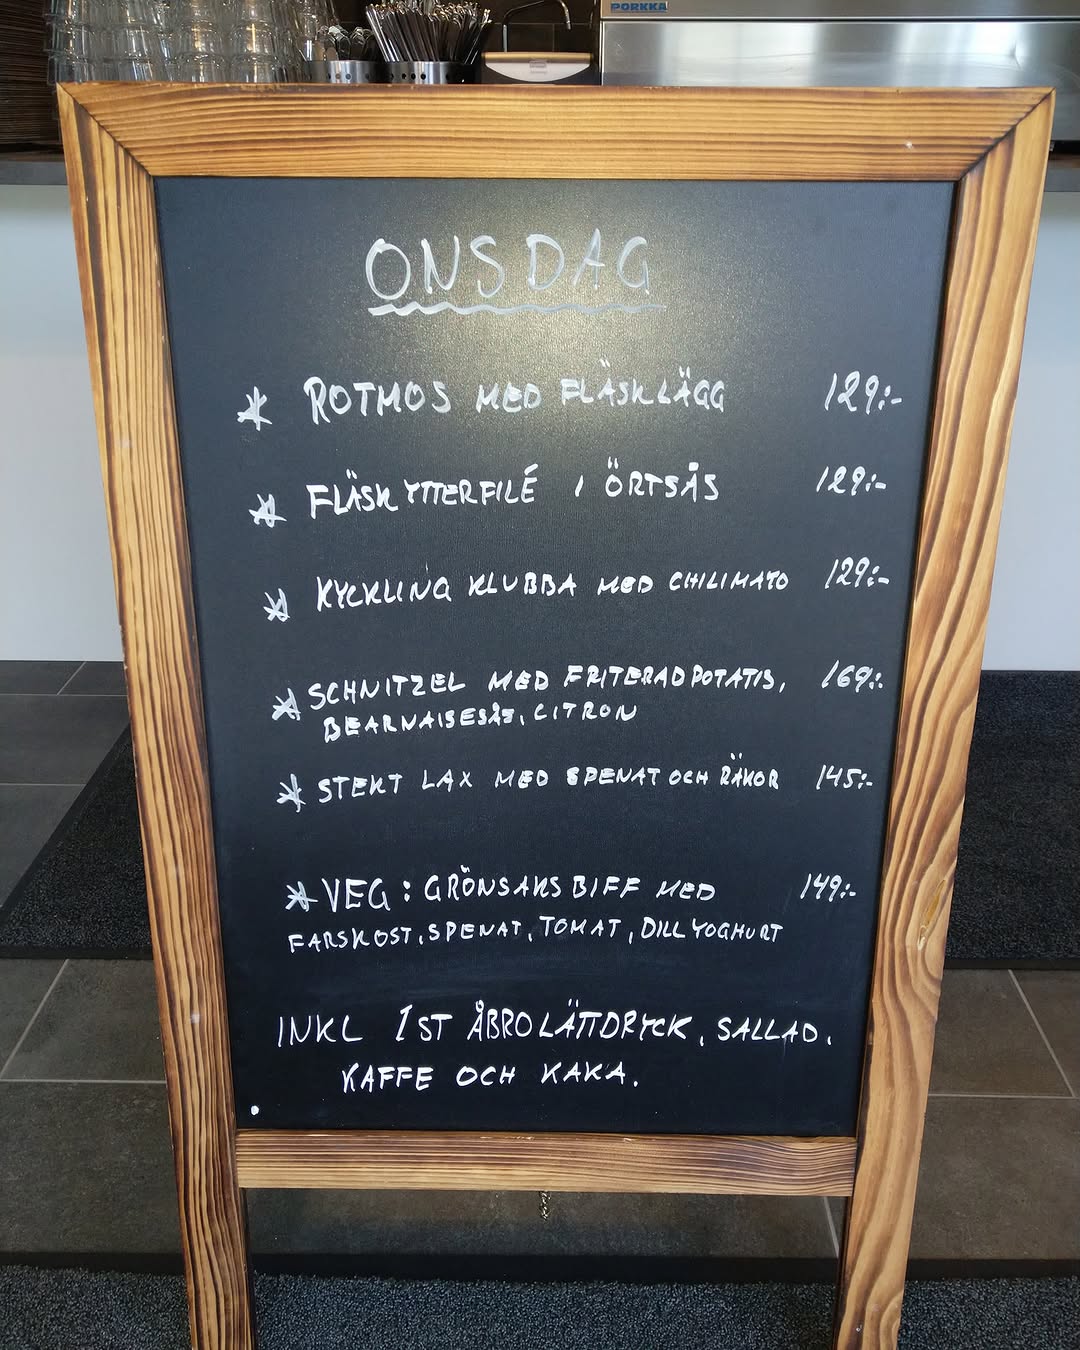 PORKKA
ONSDAG
* ROTMOS MED FLÄSKLÄGG 129:-
* FLÄSKYTTERFILÉ I ÖRTSÅS 129:-
* KYCKLING KLUBBA MED CHILIMAYO 129:-
* SCHNITZEL MED FRITERAD POTATIS, 169:-
BEARNAISESÅS, CITRON
* STEKT LAX MED SPENAT OCH RÄKOR 145:-
* VEG: GRÖNSAKSBIFF MED 149:-
FARSKOST, SPENAT, TOMAT, DILLYOGHURT
INKL 1ST ÅBRO LÄTTDRYCK, SALLAD,
KAFFE OCH KAKA.